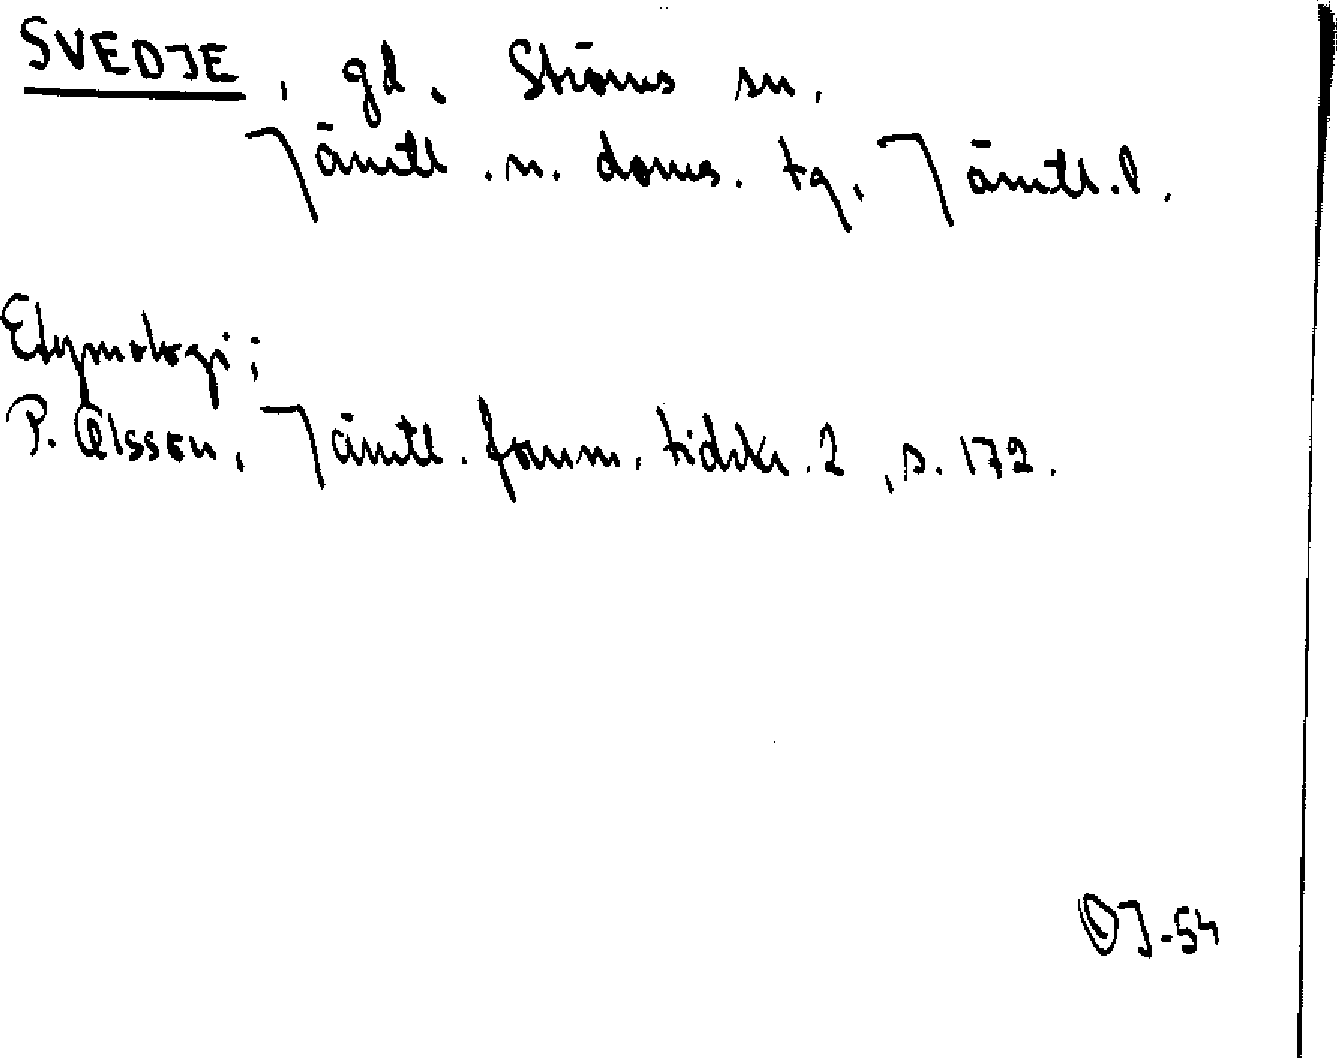 SVEDJE, gd. Ströms sn.
Jämtl. n. doms. tg, Jämtl. l.
Etymologi:
P. Olsson, Jämtl. fornm. tidskr. 2, s. 172.
OJ-54